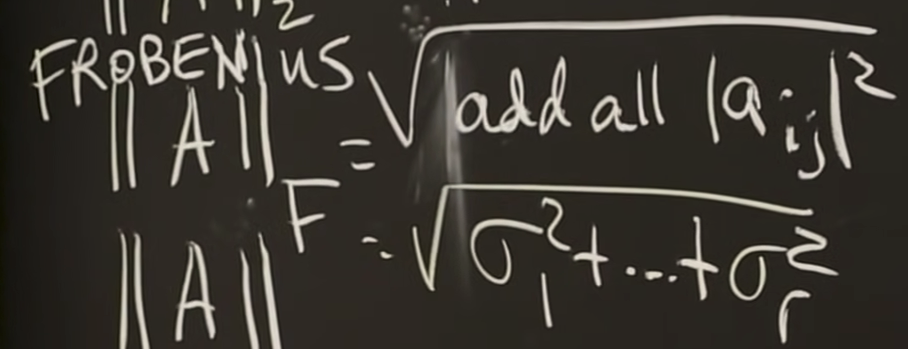 ||A||₂
FROBENIUS
||A||F = √add all |aᵢⱼ|²
= √σ₁² + ... + σᵣ²
||A||